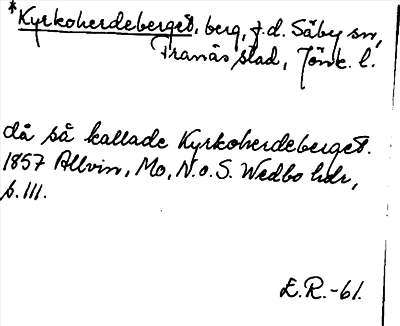 *Kyrkoherdeberget, berg, f.d. Säby sn,
Tranås stad, Jönk. l.
då så kallade Kyrkoherdeberget.
1857 Allvin, Mo, N.o.S. Wedbo hdr,
s. 111.
E.R.-61.